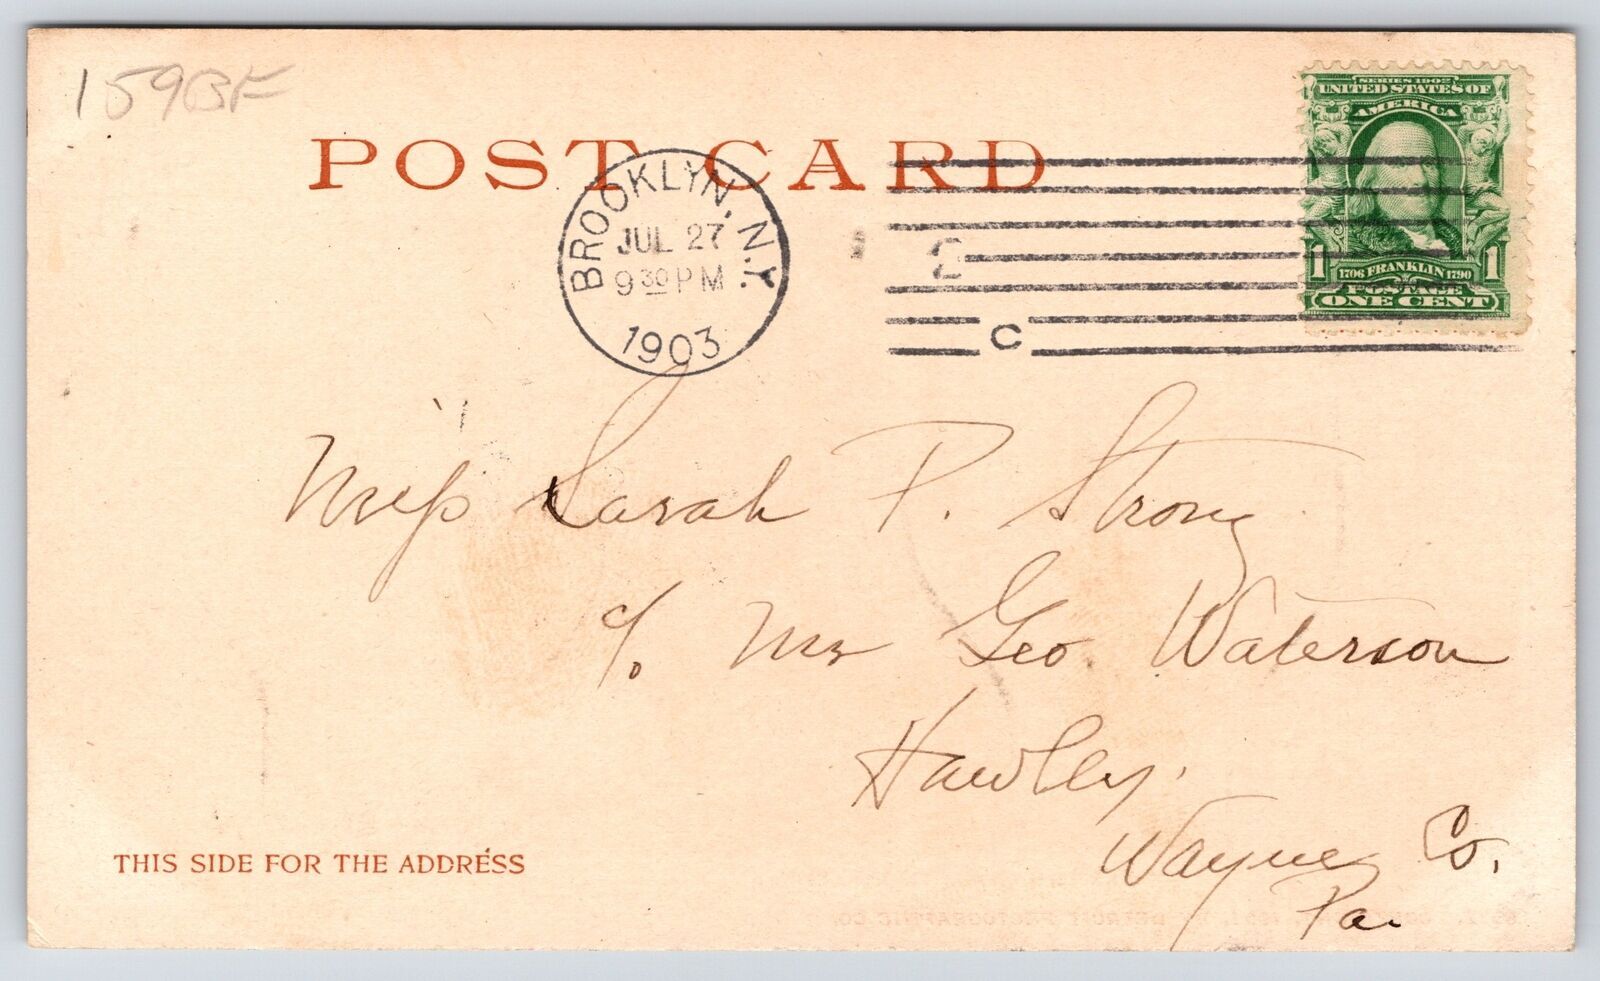 159BF
POST CARD
BROOKLYN, N.Y.
JUL 27
9 30 PM
1903
2
C
SERIES 1902
UNITED STATES OF
AMERICA
1 1706 FRANKLIN 1790 1
POSTAGE
ONE CENT
Miss Sarah P. Strong
c/o Mr Geo. Waterson
Hawley.
Wayne Co.
Pa.
THIS SIDE FOR THE ADDRESS